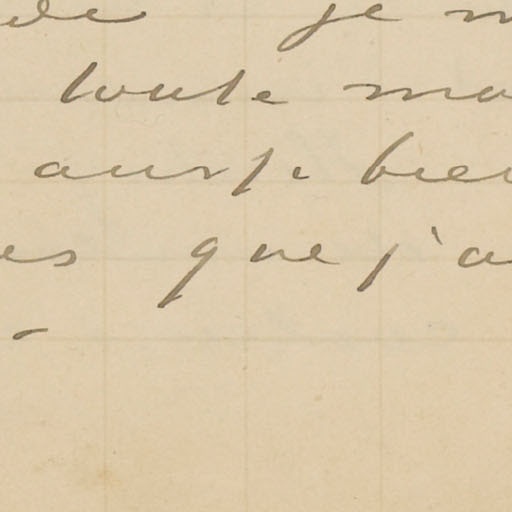 de je m
toute mo
aussi bien
es que j'a